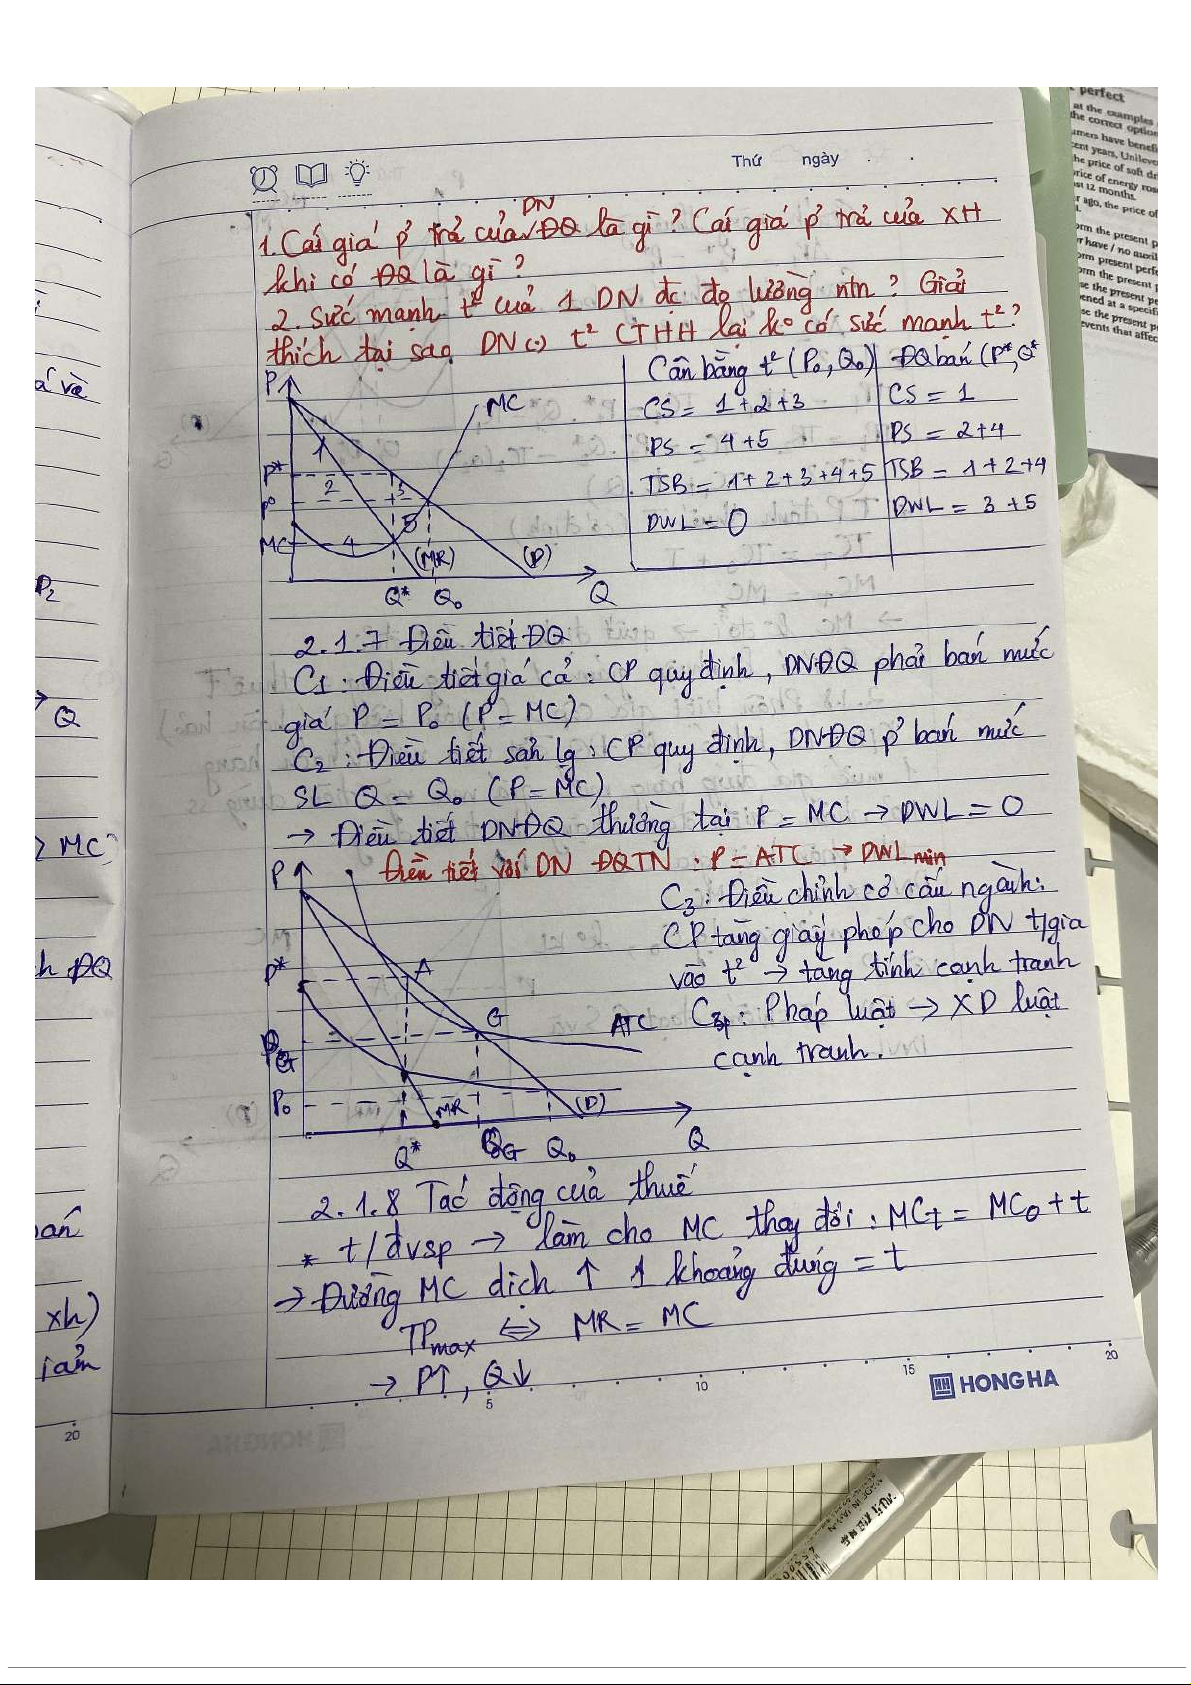 Thứ ngày
DN
1. Cái giá p' trả của ĐQ là gì? Cái giá p' trả của XH
khi có ĐQ là gì?
2. Sức mạnh t² của 1 DN đc đo lường ntn? Giải
thích tại sao DN (-) t² CTHH lại k° có sức mạnh t²?
Cân bằng t² (P₀, Q₀)
ĐQ bán (P*, Q*
CS = 1+2+3
CS = 1
PS = 4+5
PS = 2+4
TSB = 1+2+3+4+5
TSB = 1+2+4
DWL = 0
DWL = 3+5
P
MC
1
P*
2
3
P⁰
5
MC
4
(MR)
(D)
Q*
Q₀
Q
2.1.7 Điều tiết ĐQ
C1: Điều tiết giá cả: CP quy định, DNĐQ phải bán mức
giá P = P₀ (P = MC)
C2: Điều tiết sản lg: CP quy định, DNĐQ p' bán mức
SL Q = Q₀ (P = MC)
→ Điều tiết DNĐQ thường tại P = MC → DWL = 0
Điều tiết với DN ĐQTN: P = ATC → DWL min
C3: Điều chỉnh cơ cấu ngành:
CP tăng giấy phép cho DN t/gia
vào t² → tăng tính cạnh tranh
: Pháp luật → XD luật
cạnh tranh.
P
P*
A
G
ATC
G
P₀
MR
(D)
Q*
QG
Q₀
Q
2.1.8 Tác động của thuế
* t/đvsp → làm cho MC thay đổi: MCt = MC₀ + t
→ Đường MC dịch ↑ 1 khoảng đúng = t
TPmax ⇔ MR = MC
→ P↑, Q↓
5
10
15
20
HONG HA
á và
P₂
Q
MC
h ĐQ
bán
xh)
iảm
20
perfect
at the examples
the correct option